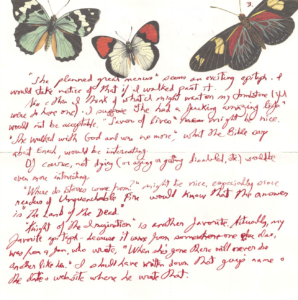 3.
"She planned great menus" seems an exciting epitaph. I
would take notice of that if I walked past it.
No, when I think of what I might want on my tombstone (if I
were to have one) - I suppose "She had a fucking amazing life"
would not be acceptable. "Savor of Lives" might be nice.
"She walked with God and was no more," what the Bible says
about Enoch would be interesting.
Of course, not dying (or aging or getting headaches, etc.) would be
even more interesting.
"Where do stories come from?" might be nice, especially since
readers of Unquenchable Fire would know that the answer
is the Land of the Dead.
"Knight of the Imagination" is another favorite. Actually, my
favorite epitaph - because it came from somewhere one else,
was from a fan, who wrote, "When she's gone there will never be
another like her." I should have written down that guy's name &
the date & website where he wrote that.